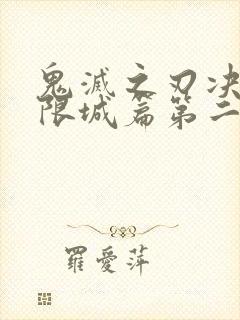 鬼滅之刃决
限城篇第二
羅愛萍